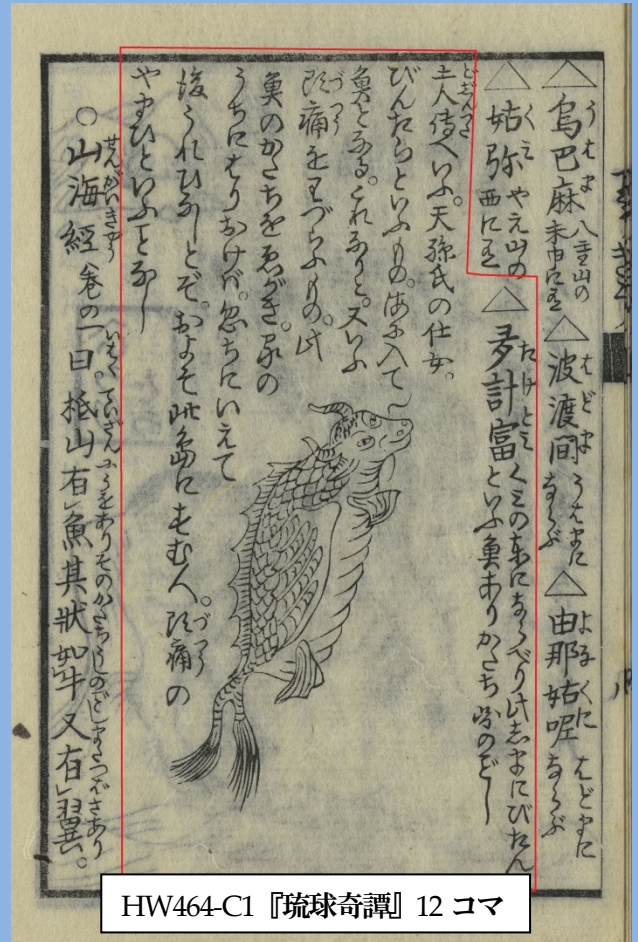 △烏巴麻 八重山の未申に有 △波渡間 うはまにならぶ △由那姑呢 はどまにならぶ
△姑弥 やえ山の西に有 △多計富 くミの東にならべり此志まにびたんといふ魚ありかたち図のごとし
土人傳へいふ。天孫氏の仕女。
びんたらといふもの。海に入て
魚となる。これなりと。又いふ
頭痛をわづらふもの。此
魚のかたちをゑがき。家の
うちにはりおけバ。忽ちにいえて
後うれひなしとぞ。およそ此島にすむ人。頭痛の
やまひといふことなし
○山海經 巻の一曰。柢山有魚其狀如牛又有翼。
HW464-C1『琉球奇譚』12 コマ